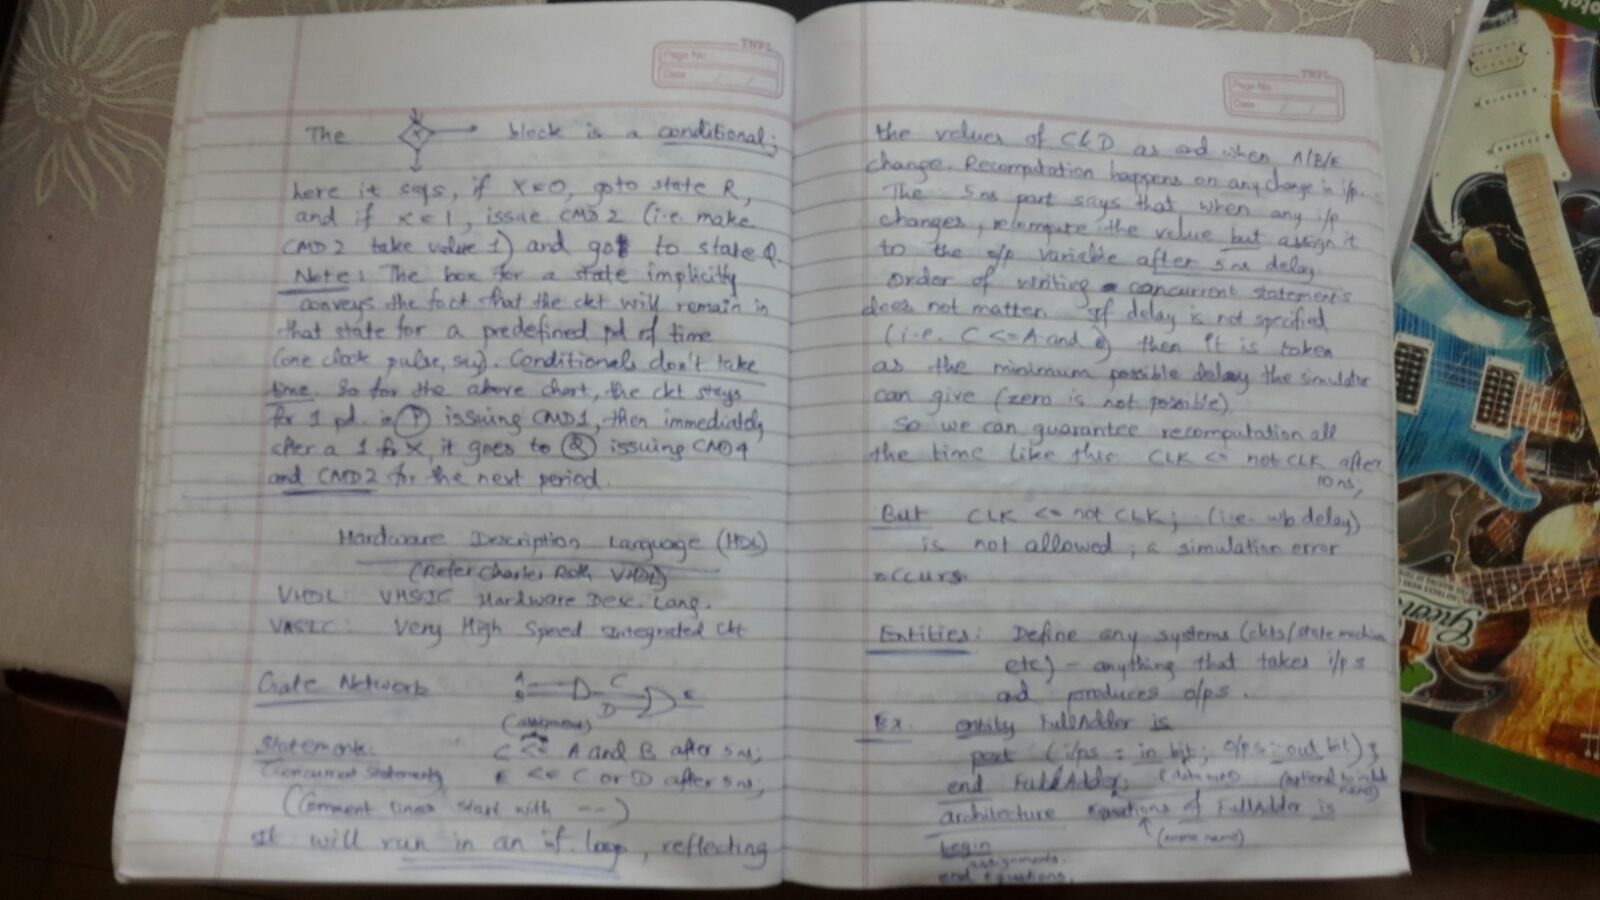 TNPL
Page No.:
Date: / /
The X block is a conditional;
here it says, if X=0, goto state R,
and if X=1, issue CMD2 (i.e. make
CMD2 take value 1) and go to state Q.
Note: The box for a state implicitly
conveys the fact that the ckt will remain in
that state for a predefined pd of time
(one clock pulse, say). Conditionals don't take
time. So for the above chart, the ckt stays
for 1 pd. in P issuing CMD1, then immediately
after a 1 for X, it goes to Q issuing CMD4
and CMD2 for the next period.
Hardware Description Language (HDL)
(Refer Charles Roth VHDL)
VHDL: VHSIC Hardware Desc. Lang.
VHSIC: Very High Speed Integrated Ckt
Gate Network
A B C D E
(assignment)
Statements: C <= A and B after 5 ns;
(Concurrent Statements) E <= C or D after 5 ns;
(Comment lines start with --)
It will run in an inf. loop, reflecting
TNPL
Page No.:
Date: / /
the values of C & D as ad when A/B/E
change. Recomputation happens on any change in i/p.
The 5 ns part says that when any i/p
changes, recompute the value but assign it
to the o/p variable after 5 ns delay
Order of writing concurrent statements
does not matter. If delay is not specified
(i.e. C <= A and B) then it is taken
as the minimum possible delay the simulator
can give (zero is not possible)
So we can guarantee recomputation all
the time like this: CLK <= not CLK after
10 ns;
But CLK <= not CLK; (i.e. w/o delay)
is not allowed; a simulation error
occurs.
Entities: Define any systems (ckts/state machine
etc) - anything that takes i/ps
ad produces o/ps.
Ex. entity FullAdder is
port (i/ps : in bit; o/ps : out bit);
end FullAdder; (optional to right name)
architecture Equations of FullAdder is
(some name)
begin
assignments.
end Equations.